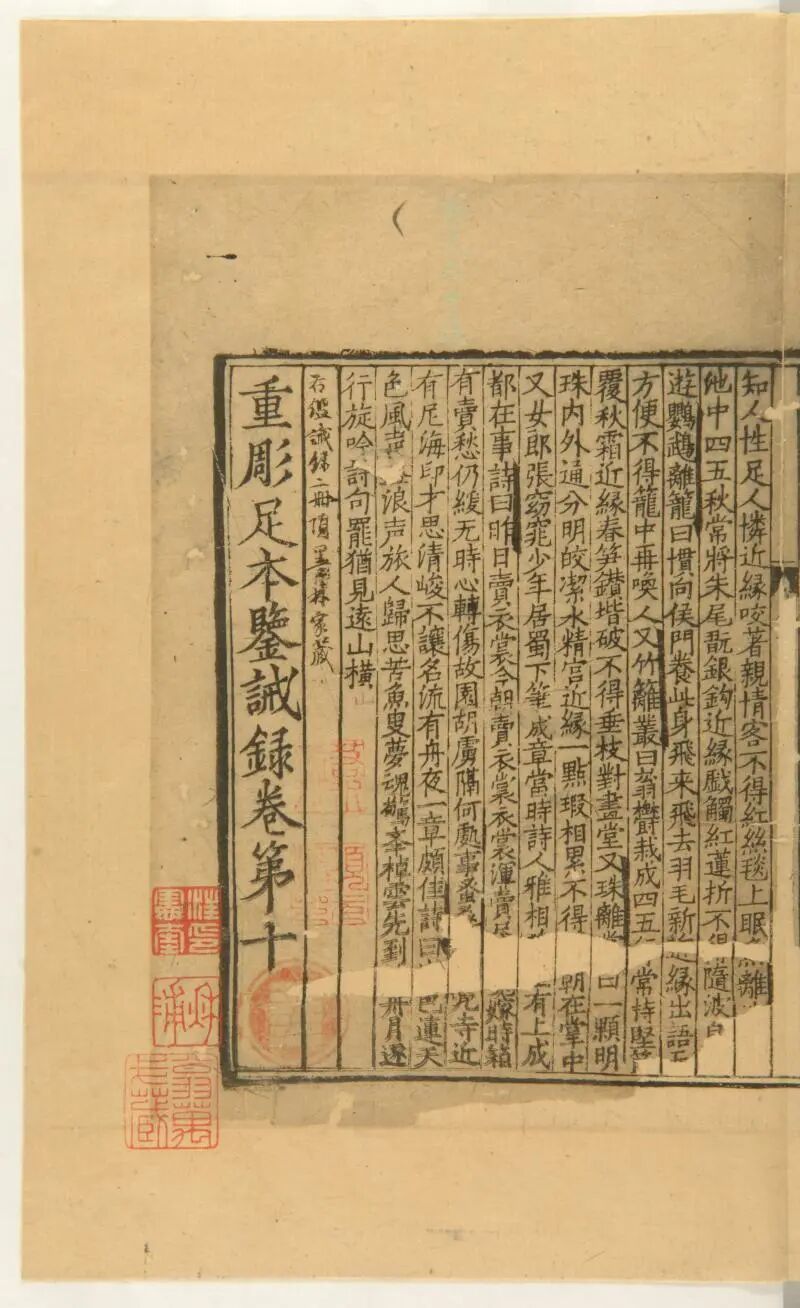 知人性足人憐近緣咬著親情客不得紅絲毯上眠 離
池中四五秋常將朱尾翫銀鉤近緣戲觸紅蓮折不 隨波
遊鸚鵡離籠曰慣向侯門養此身飛来飛去羽毛新 緣出語
方便不得籠中再喚人又竹離叢曰蓊欝栽成四五 常持堅
覆秋霜近緣春笋鑚堦破不得垂枝對畫堂又珠離 曰一顆明
珠内外通分明皎潔水精宮近緣一點瑕相累不得 朝在掌中
又女郎張窈窕少年居蜀下筆成章當時詩人雅相 有上成
都在事詩曰昨日賣衣裳今朝賣衣裳衣裳渾賣 嫁時箱
有賣愁仍緩无時心轉傷故園胡虜隔何䖏事蚕 尼寺近
有尼海印才思清峻不讓名流有舟夜一章頗佳詩曰 色連天
色風声 浪声旅人歸思苦魚叟夢魂驚峯棹雲先到 舟月遂
行旋吟詩句罷猶見遠山橫
右鑑誡錄二冊項墨林家藏
重彫足本鑒誡録卷第十